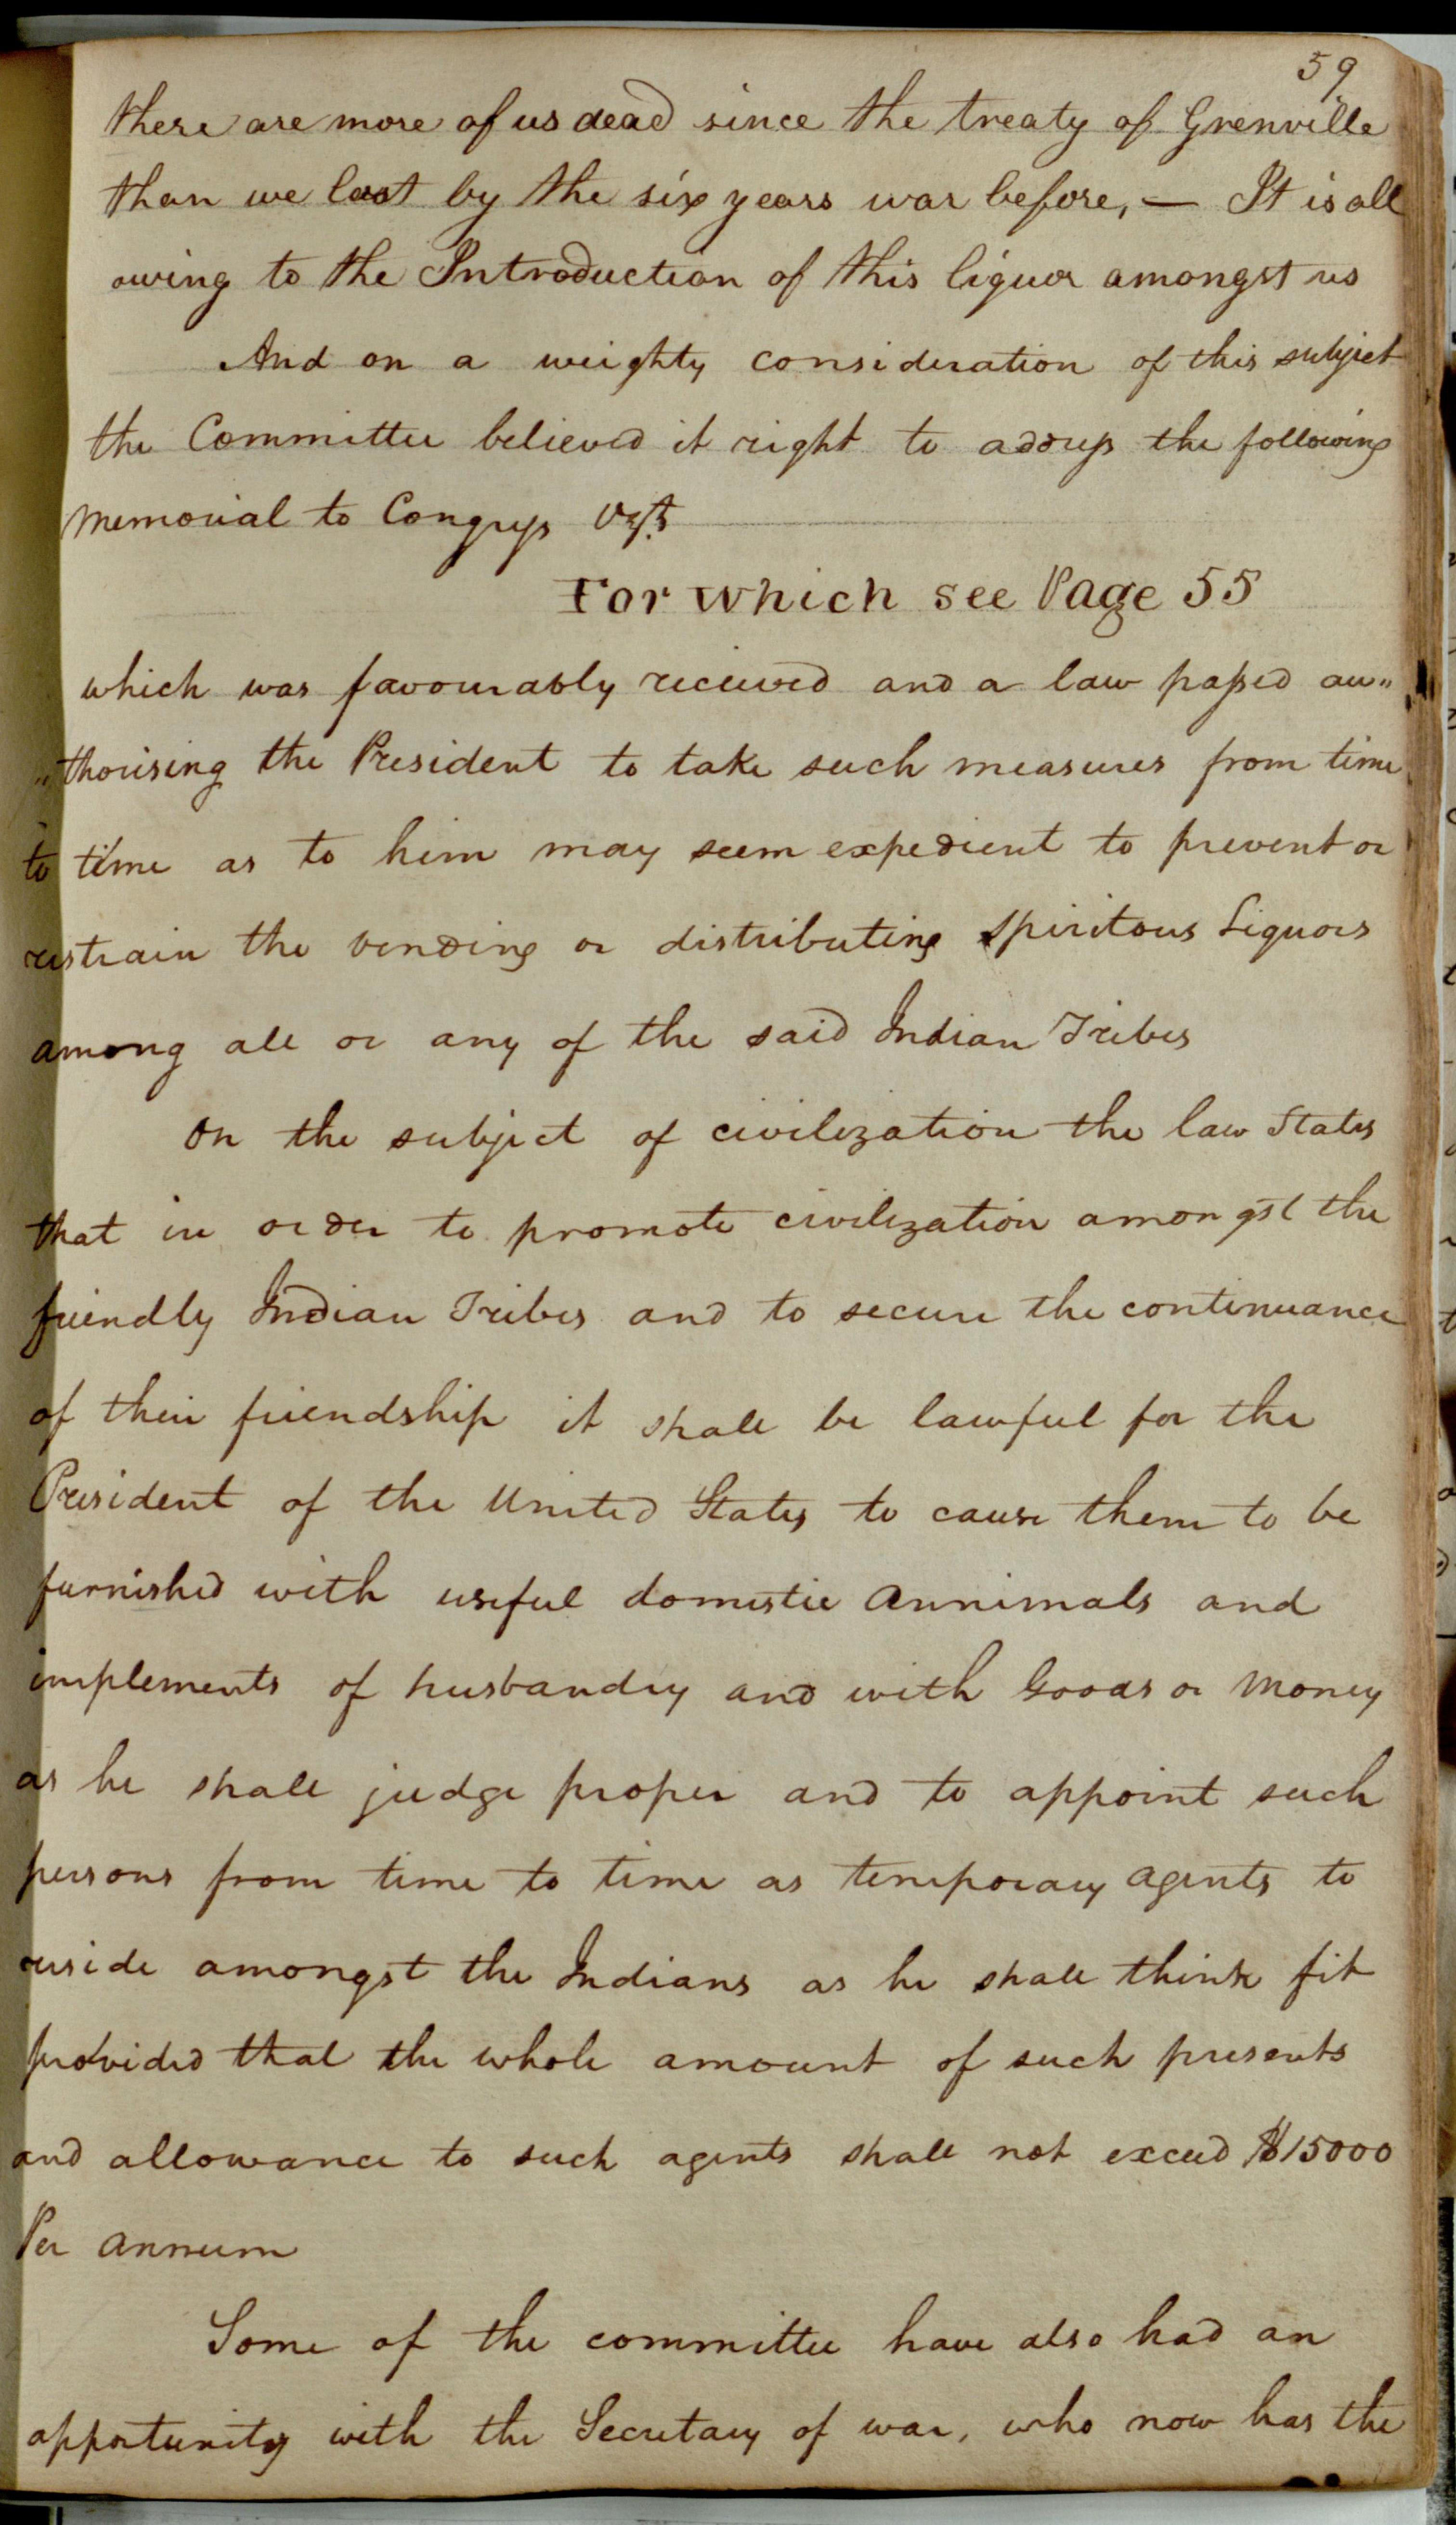 59
there are more of us dead since the treaty of Grenville
than we lost by the six years war before, — It is all
owing to the Introduction of this liquor amongst us
And on a weighty consideration of this subject
the Committee believed it right to address the following
Memorial to Congress Vizt
For which see Page 55
which was favourably received and a law passed au"
"thorising the President to take such measures from time
to time as to him may seem expedient to prevent or
restrain the vending or distributing spiritous Liquors
among all or any of the said Indian Tribes
On the subject of civilization the law States
that in order to promote civilization amongst the
friendly Indian Tribes and to secure the continuance
of their friendship it shall be lawful for the
President of the United States to cause them to be
furnished with useful domestic Annimals and
implements of husbandry and with Goods or Money
as he shall judge proper and to appoint such
persons from time to time as temporary agents to
reside amongst the Indians as he shall think fit
provided that the whole amount of such presents
and allowance to such agents shall not exceed $15000
Per annum
Some of the committee have also had an
opportunity with the Secretary of war, who now has the